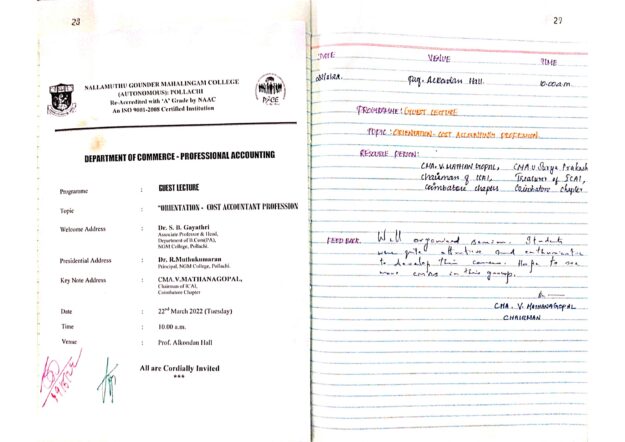 28
NALLAMUTHU GOUNDER MAHALINGAM COLLEGE
(AUTONOMOUS) POLLACHI
Re-Accredited with 'A' Grade by NAAC
An ISO 9001-2008 Certified Institution
DEPARTMENT OF COMMERCE - PROFESSIONAL ACCOUNTING
Programme : GUEST LECTURE
Topic : "ORIENTATION - COST ACCOUNTANT PROFESSION
Welcome Address : Dr. S. B. Gayathri
Associate Professor & Head,
Department of B.Com(PA),
NGM College, Pollachi.
Presidential Address : Dr. R.Muthukumaran
Principal, NGM College, Pollachi.
Key Note Address : CMA.V.MATHANAGOPAL,
Chairman of ICAI,
Coimbatore Chapter
Date : 22nd March 2022 (Tuesday)
Time : 10.00 a.m.
Venue : Prof. Alkondan Hall
All are Cordially Invited
***
29
DATE VENUE TIME
Hall. 10.00 a.m
PROGRAMME: GUEST LECTURE
TOPIC: ORIENTATION - COST ACCOUNTANT PROFESSION
RESOURCE PERSON:
CMA. V. MATHAN GOPAL, CMA. U. Surya Prakash
Chairman of ICAI, Treasurer of ICAI,
Coimbatore chapter Coimbatore chapter.
FEED BACK: Well organised session. Students
were quite attentive and enthusiastic
to develop this career. Hope to see
more CMAs in this group.
CMA. V. MATHANAGOPAL
CHAIRMAN